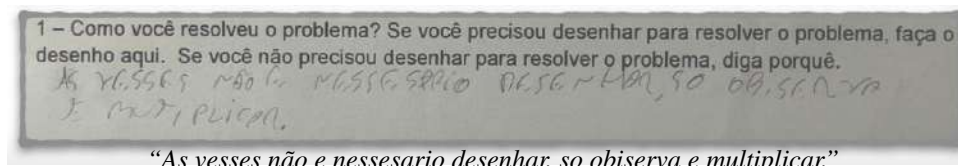 1 – Como você resolveu o problema? Se você precisou desenhar para resolver o problema, faça o
desenho aqui. Se você não precisou desenhar para resolver o problema, diga porquê.
AS VESSES NÃO E NESSESARIO DESENHAR, SO OBISERVA
E MUTIPLICAR.
“As vesses não e nessesario desenhar, so obiserva e multiplicar.”